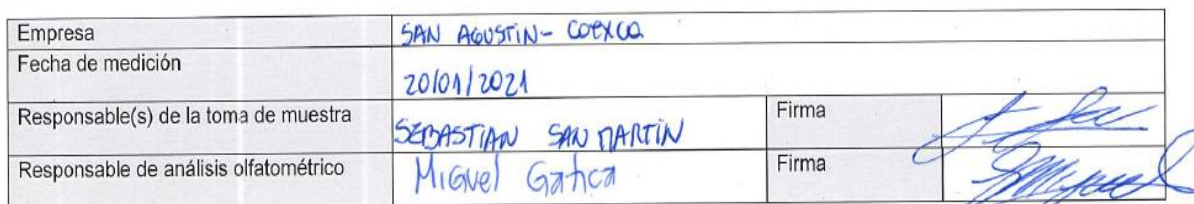 Empresa SAN AGUSTIN- COEXCA
Fecha de medición 20/01/2021
Responsable(s) de la toma de muestra SEBASTIAN SAN MARTIN Firma
Responsable de análisis olfatométrico Miguel Gatica Firma